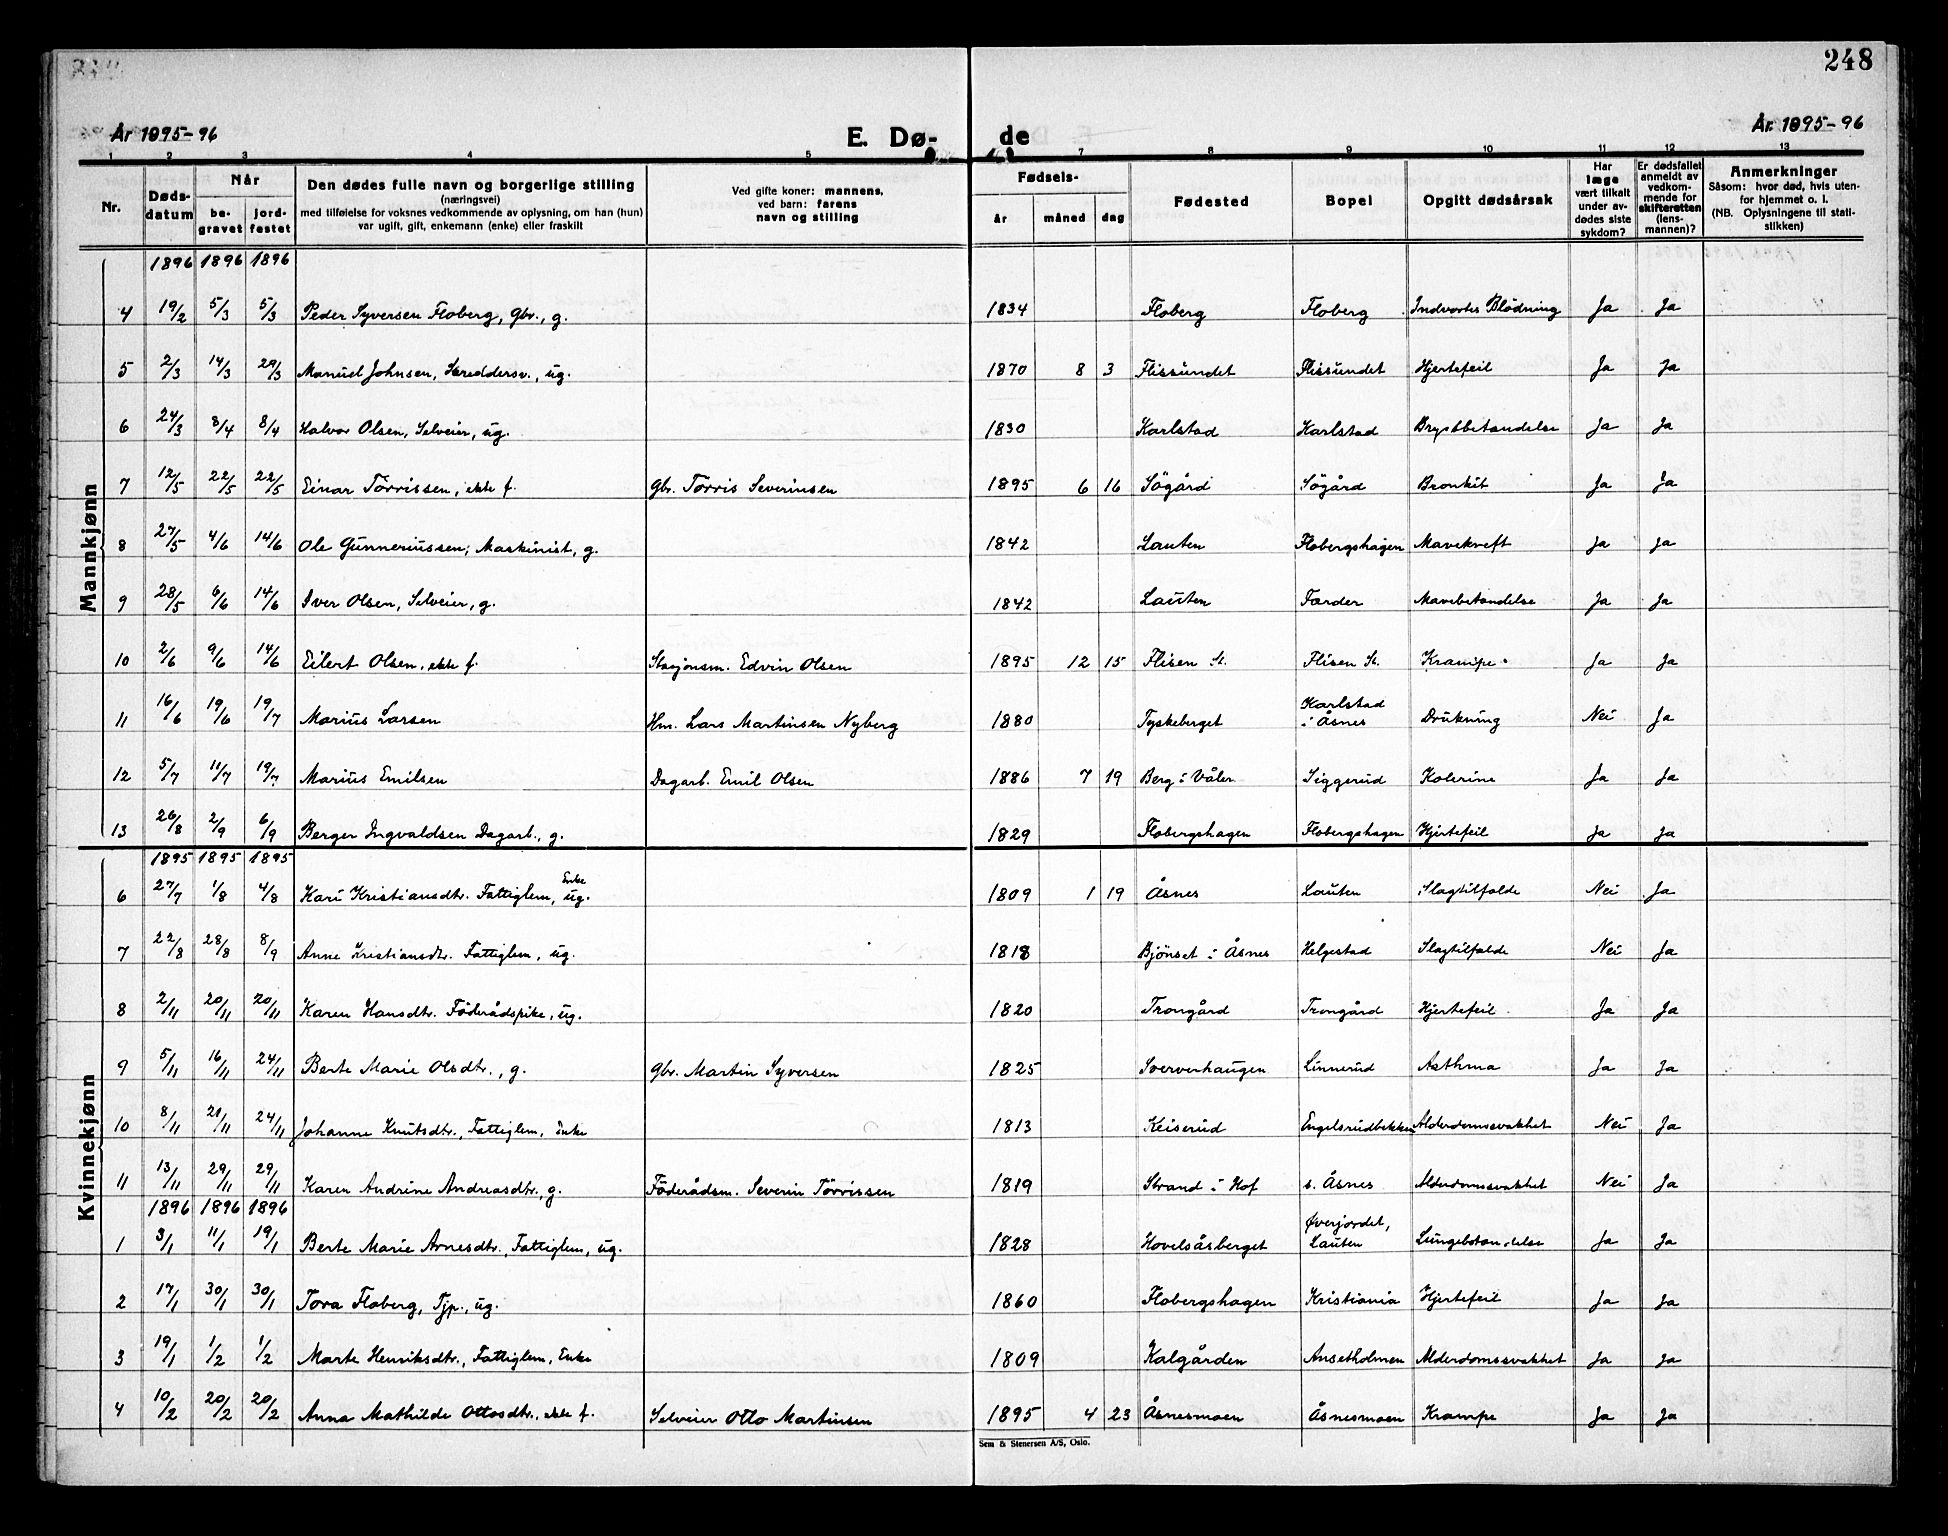 248
År 1895-96 E. Dø- de År 1895-96
1 2 3 4 5 7 8 9 10 11 12 13
Nr. Dødsdatum Når begravet jordfestet Den dødes fulle navn og borgerlige stilling (næringsvei) med tilføielse for voksnes vedkommende av oplysning, om han (hun) var ugift, gift, enkemann (enke) eller fraskilt Ved gifte koner: mannens, ved barn: farens navn og stilling Fødsels- år måned dag Fødested Bopel Opgitt dødsårsak Har læge vært tilkalt under avdødes siste sykdom? Er dødsfallet anmeldt av vedkommende for skifteretten (lensmannen)? Anmerkninger Såsom: hvor død, hvis utenfor hjemmet o. l. (NB. Oplysningene til statistikken)
Mannkjønn
1896 1896 1896
4 19/2 5/3 5/3 Peder Syversen Floberg, Gbr., g. 1834 Floberg Floberg Indvortes Blödning Ja Ja
5 2/3 14/3 29/3 Manuel Johnsen, Skreddersv., ug. 1870 8 3 Flissundet Flissundet Hjertefeil Ja Ja
6 24/3 8/4 8/4 Halvor Olsen, Selveier, ug. 1830 Karlstad Karlstad Brystbetændelse Ja Ja
7 12/5 22/5 22/5 Einar Törrissen, ekte f. Gbr. Törris Severinsen 1895 6 16 Sögård Sögård Bronkit Ja Ja
8 27/5 4/6 14/6 Ole Gunneriussen, Maskinist, g. 1842 Lauten Flobergshagen Mavekreft Ja Ja
9 28/5 6/6 14/6 Iver Olsen, Selveier, g. 1842 Lauten Farder Mavebetændelse Ja Ja
10 2/6 9/6 14/6 Eilert Olsen, ekte f. Stasjonsm. Edvin Olsen 1895 12 15 Flisen St. Flisen St. Krampe Ja Ja
11 16/6 19/6 19/7 Marius Larsen Hm. Lars Martinsen Nyberg 1880 Tyskeberget Karlstad i Åsnes Drukning Nei Ja
12 5/7 11/7 19/7 Marius Emilsen Dagarb. Emil Olsen 1886 7 19 Berg i Våler Siggerud Kolerine Ja Ja
13 26/8 2/9 6/9 Berger Ingvaldsen Dagarb., g. 1829 Flobergshagen Flobergshagen Hjertefeil Ja Ja
Kvinnekjønn
1895 1895 1895
6 27/7 1/8 4/8 Kari Kristiansdtr. Fattiglem, Enke ug. 1809 1 19 Åsnes Lauten Slagtilfælde Nei Ja
7 22/8 28/8 8/9 Anne Kristiansdtr. Fattiglem, ug. 1818 Bjönset i Åsnes Helgestad Slagtilfælde Nei Ja
8 2/11 20/11 20/11 Karen Hansdtr. Föderådspike, ug. 1820 Trongård Trongård Hjertefeil Ja Ja
9 5/11 16/11 24/11 Berte Marie Olsdtr., g. Gbr. Martin Syversen 1825 Sververhaugen Linnerud Asthma Ja Ja
10 8/11 20/11 24/11 Johanne Knutsdtr., Fattiglem, Enke 1813 Keiserud Engelsrudbekken Alderdomssvakhet Nei Ja
11 13/11 29/11 29/11 Karen Andrine Andreasdtr., g. Föderådsm. Severin Törrissen 1819 Strand i Hof s. Åsnes Alderdomssvakhet Nei Ja
1896 1896 1896
1 3/1 11/1 19/1 Berte Marie Arnesdtr., Fattiglem, ug. 1828 Hovelsåsberget Øverjordet, Lauten Lungebetændelse Ja Ja
2 17/1 30/1 30/1 Tora Floberg, Tjp., ug. 1860 Flobergshagen Kristiania Hjertefeil Ja Ja
3 19/1 1/2 1/2 Marte Henriksdtr., Fattiglem, Enke 1809 Kalgården Ansetholmen Alderdomssvakhet Ja Ja
4 10/2 20/2 20/2 Anna Mathilde Ottosdtr., ekte f. Selveier Otto Martinsen 1895 4 23 Åsnesmoen Åsnesmoen Krampe Ja Ja
Sem & Stenersen A/S, Oslo.